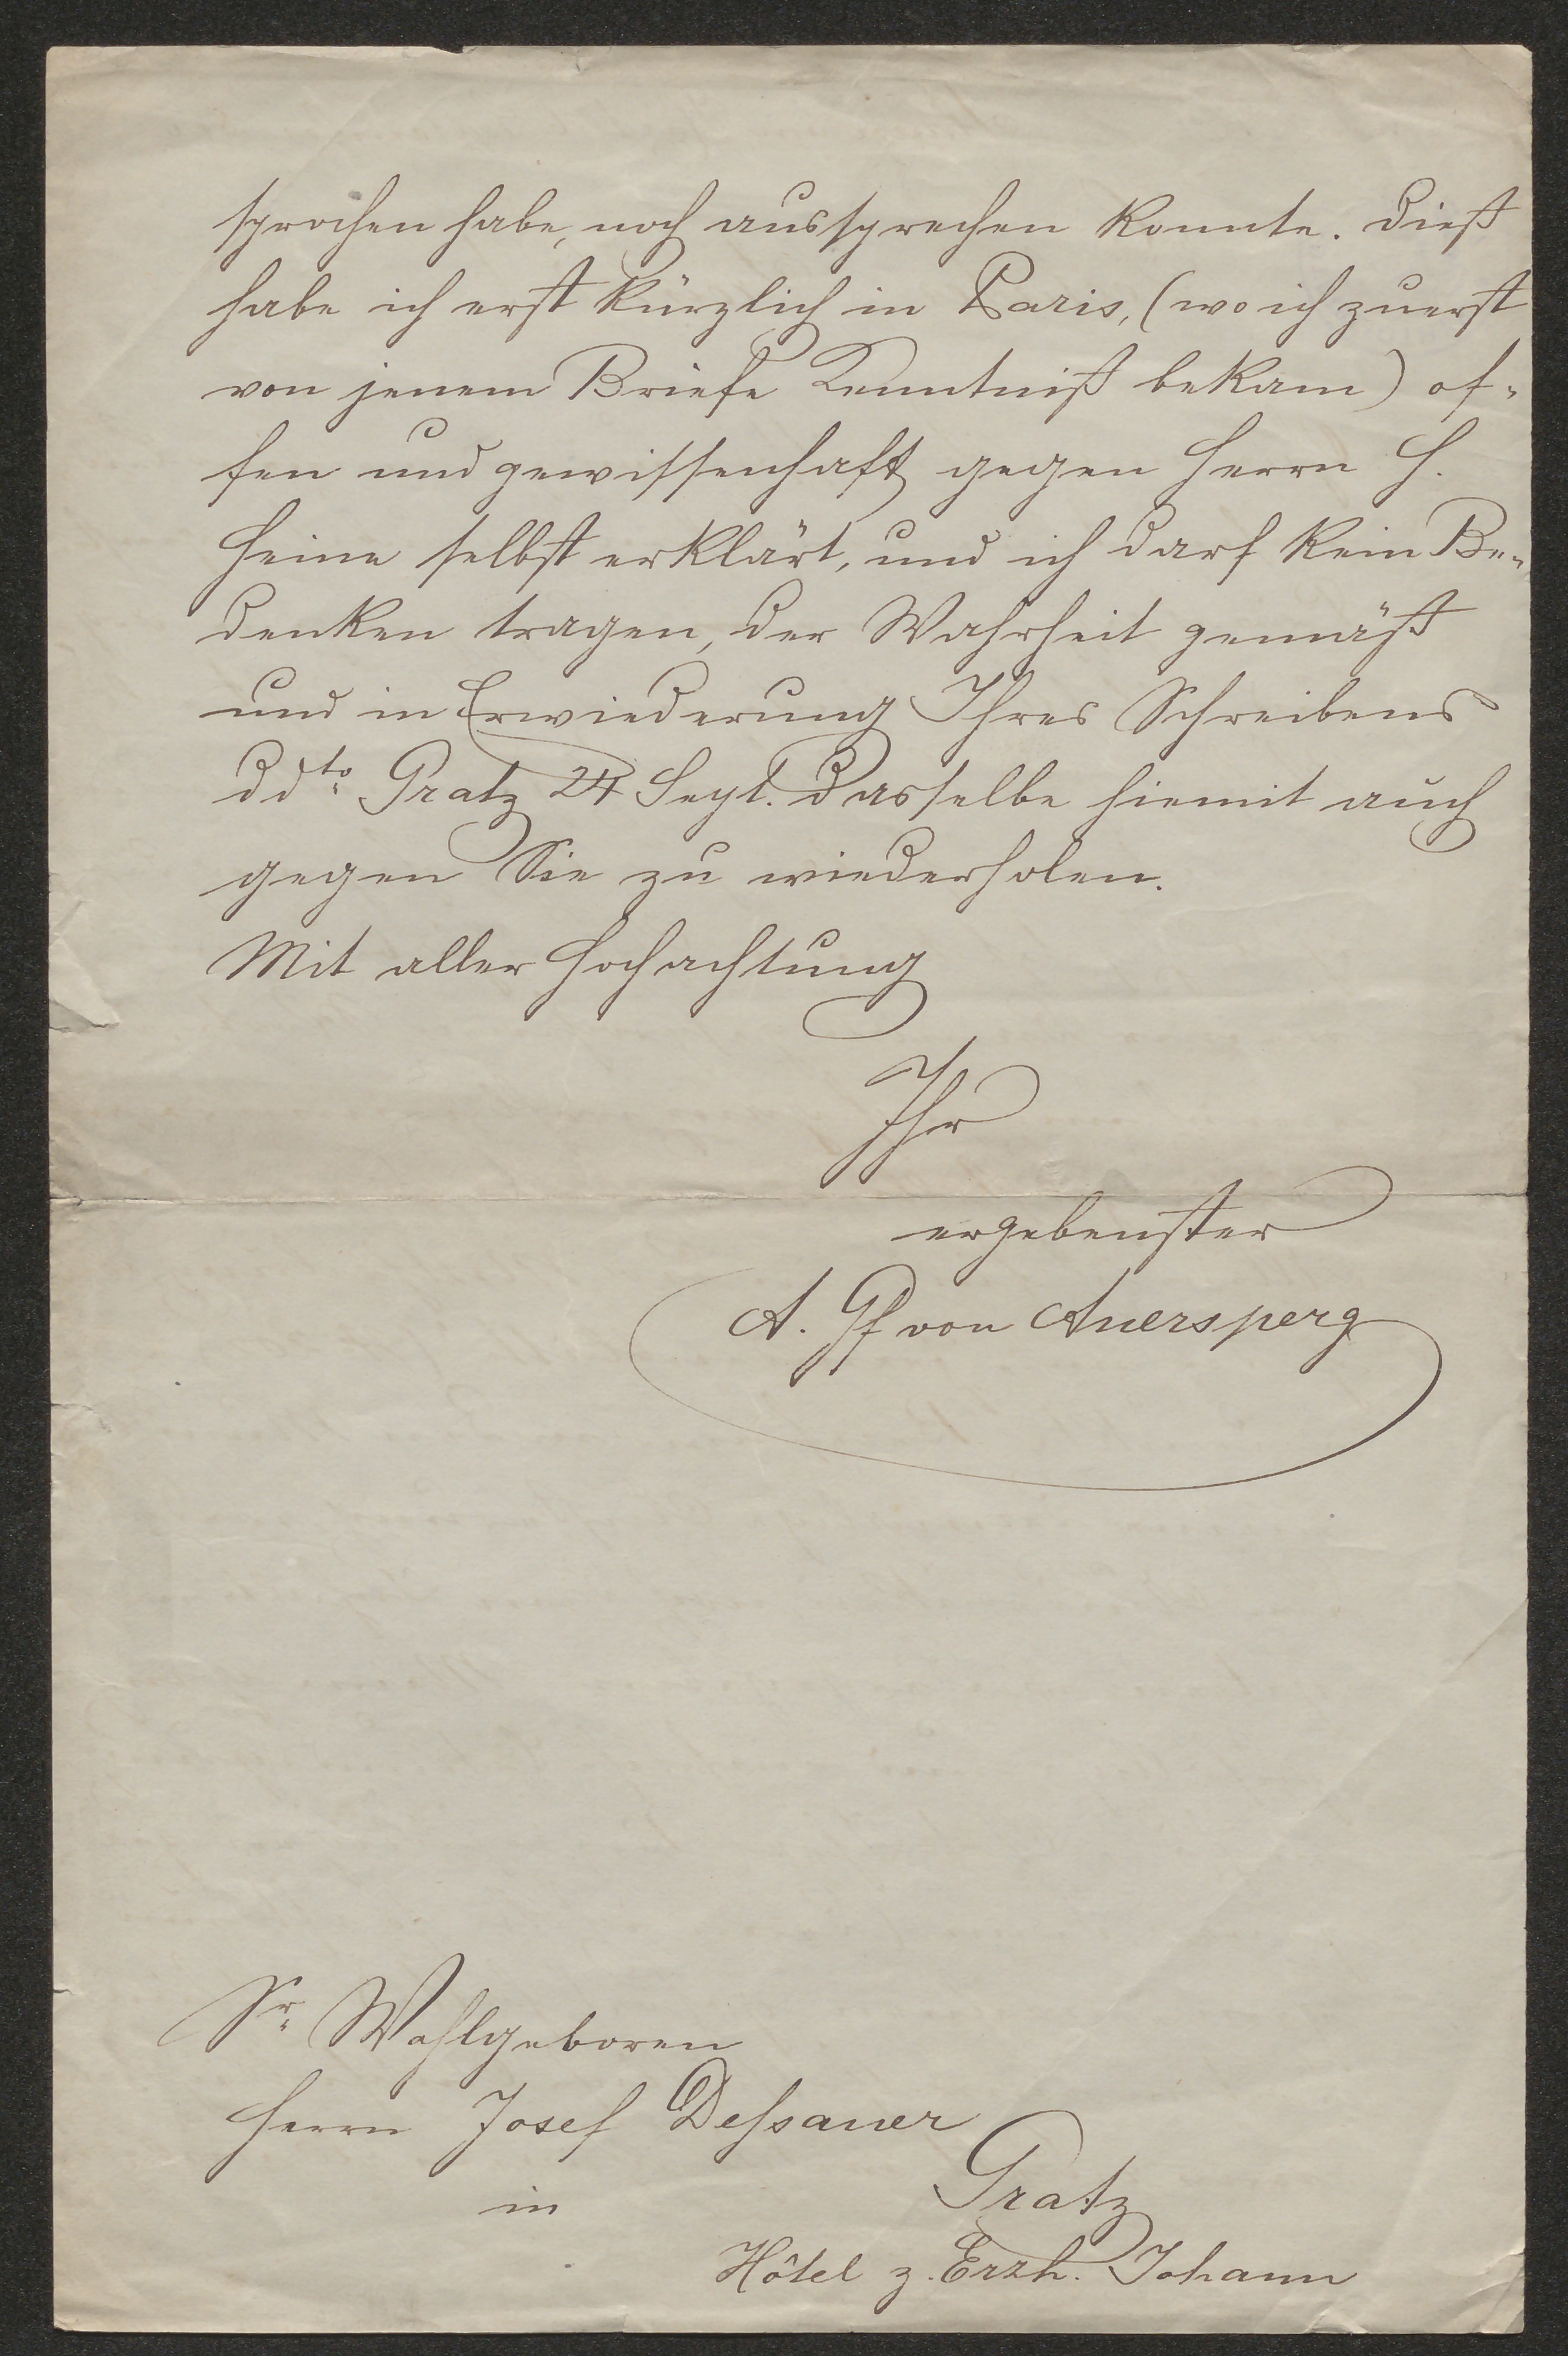 sprochen habe, noch aussprechen konnte. Dieß
habe ich erst kürzlich in Paris, (wo ich zuerst
von jenem Briefe Kenntniß bekam) of-
fen und gewissenhaft gegen Herrn H.
Heine selbst erklärt, und ich darf kein Be-
denken tragen, der Wahrheit gemäß
und in Erwiederung Ihres Schreibens
ddto Gratz 24 Sept. dasselbe hiemit auch
gegen Sie zu wiederholen.
Mit aller Hochachtung
Ihr
ergebenster
A. Gf von Auersperg
Sr. Wohlgeboren
Herrn Josef Dessauer
in Gratz
Hôtel z. Erzh. Johann